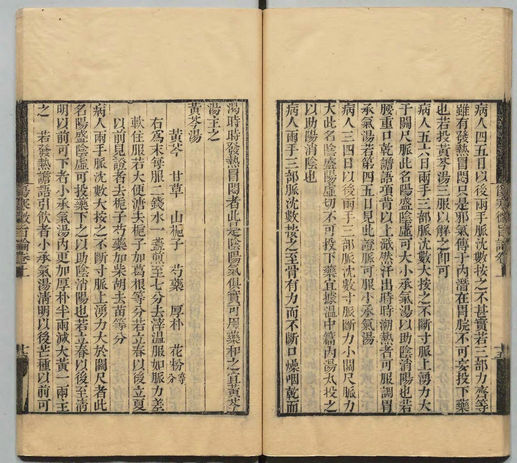 病人四五日以後兩手脈沈數按之不甚實若三部力齊等
雖有發熱冒悶只是邪氣傳於內潛在胃脘不可妄投下藥
也若投黃芩湯三服以解之即可
病人五六日兩手三部脈沈數大按之不斷寸脈上湧力大
于關尺脈此名陽盛陰虛可大小承氣湯以助陰消陽也若
腰重口乾譫語項背以上濈然汗出時時潮熱者可服調胃
承氣湯若第四五日見此證脈可服小承氣湯
病人三四日以後兩手三部脈沈數寸脈斷力小關尺脈力
大此名陰盛陽虛切不可投下藥宜據溫中篇內湯文投之
以助陽消陰也
病人兩手三部脈沈數按之至骨有力而不斷口燥咽乾而
渴時時發熱冒悶者此是陰陽氣俱實可用藥和之宜黃芩
湯主之
黃芩湯
黃芩 甘草 山梔子 芍藥 厚朴 花粉
右為末每服二錢水一盞煎至七分去滓溫服如脈力差
軟住服若大便溏去梔子加葛根等分若立春以後立夏
以前見證者去梔子芍藥加柴胡去苗等分
病人兩手脈沈數大按之不斷寸脈上湧力大於關尺者此
名陽盛陰虛可投藥下之以助陰消陽也若立春以後至清
明以前可下者小承氣湯內更加厚朴半兩減大黃一兩主
之 若發熱譫語引飲者小承氣湯清明以後芒種以前可